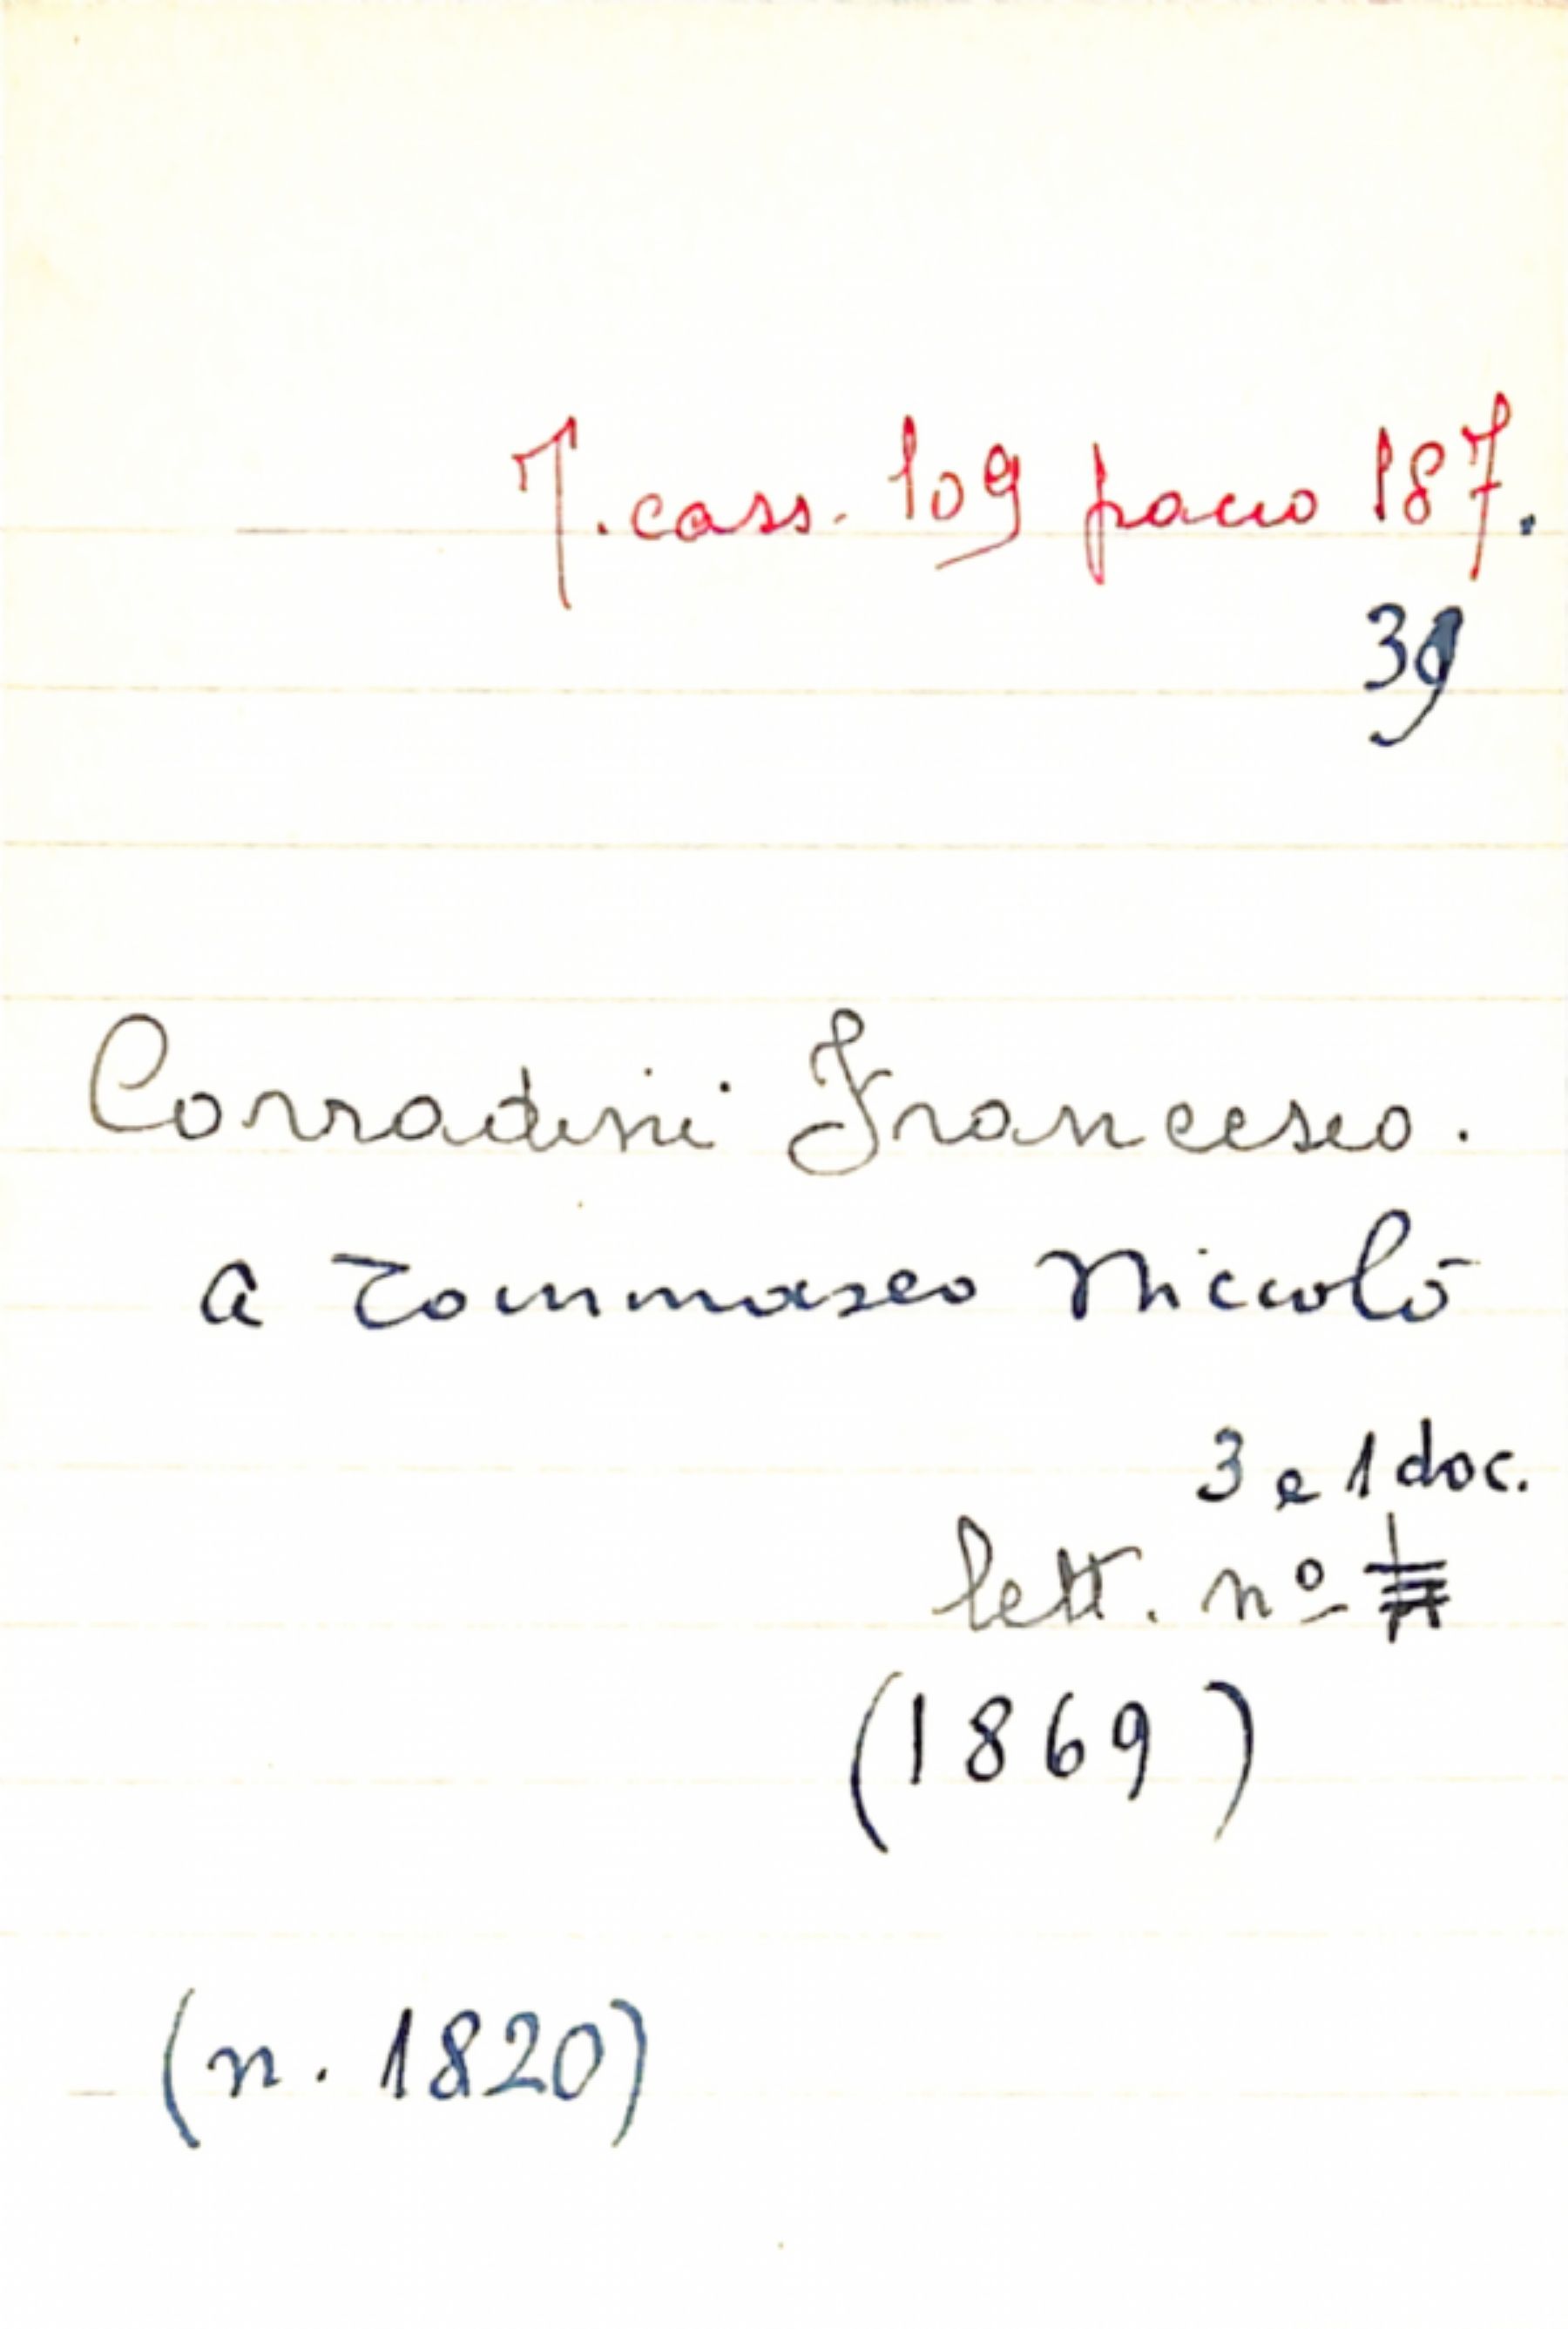 T. cass. 109 pacco 187.
39
Corradini Francesco.
a Tommaseo Niccolò
3 e 1 doc.
lett. nº
(1869)
(n. 1820)